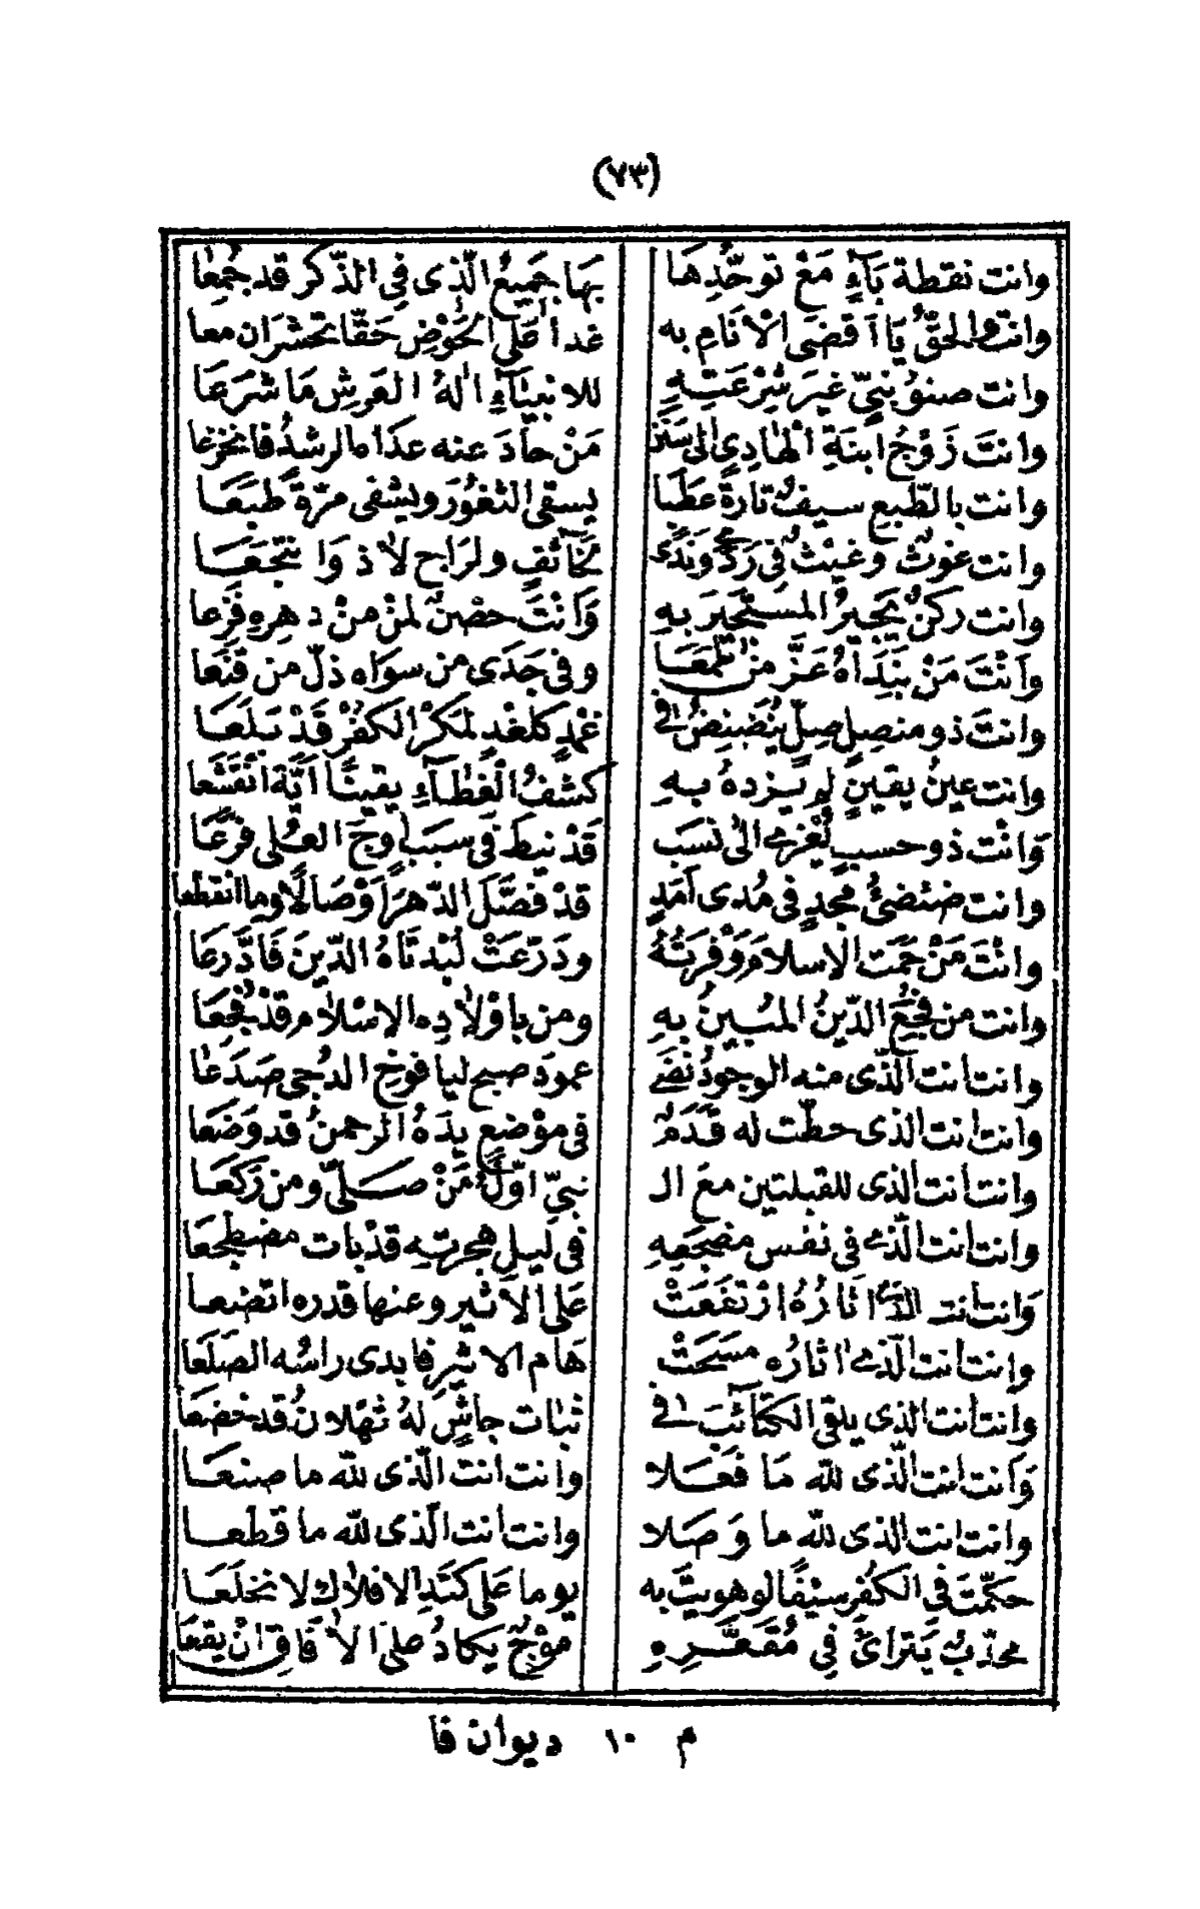 (٧٣)
وانت نقطة بَآءٍ مَعْ توحّدِهَا بِهَا جَمِيعُ الَّذى فِى الذّكر قد جُمِعَا
وانت والحقُّ يَا اَقضَى الْاَنَامِ به غداً عَلَى الحَوْضِ حَقّا تحشَران معا
وانت صنو نبىّ غيرَ شِرْعَتِهِ للانبيَآءِ الٰهُ العَرشِ مَا شَرَعَا
وانتَ زَوْجُ ابنةِ الهَادِى الٰى سَنَنٍ مَنْ حادَ عنه عَدَاه الرشدُ فانخزعا
وانت بالطّبع سيفٌ تارةً عَطَبا يسقى الثغُورَ ويشفى مرّةً طَبَعَا
وانت غوثٌ وغيثٌ فى رَدًى وَنَدًى لخَآئفٍ ولرَاجٍ لاذ وَانتجَعَا
وانت ركنٌ يجيرُ المستجيرَ بهِ وَانْتَ حصْنٌ لمنْ منْ دهرِهِ فزِعا
وَانْتَ مَنْ بِنَدَاهُ عَزَّ من طمَعَا وفى جَدَى من سوَاه ذلّ من قنَعا
وانتَ ذو منصِلٍ صِلٍّ يُنَضْنِضُ فى غمْدٍ كلغْدٍ لمَكرْ الكفُرْ قَدْ بَلَعَا
وانت عينُ يقينٍ لم يزدهُ بهِ كشفُ الْغِطَآءِ يقينًا اَيّةَ انْقَشَعا
وَانْتَ ذو حسبٍ يُعْزى الٰى نسَبٍ قَدْ نيطَ فى سبَبٍ اوجَ العُلى فرَعَا
وانت ضئضئُ مجدٍ فى مُدى اَمَدٍ قدْ فصَّلَ الدّهرَ اَوْصَالًا وما انقَطعا
وانْتَ مَنْ حَمَت الاِسلامَ وَفْرَتُهُ ودَرّعَتْ لُبْدتَاهُ الدّينَ فَادَّرعَا
وانت من فُجِعَ الدّينُ المُبينُ بِهِ ومن باَوْلَادِه الاِسْلَام قدْ فُجِعَا
وانت انت الّذى منه الوجودُ نضَى عمودَ صبحٍ ليافوخِ الدُجى صَدَعَا
وانت انت الذى حطّت له قَدَمٌ فى موْضِعٍ يدَهُ الرحمنُ قد وَضَعَا
وانت انت الذى للقبلتين مَعَ الـ نبىّ اوّلُ مَنْ صَلّى ومن رَكَعَا
وانت انت الّذى فى نفس مضجَعِهِ فى لَيلِ هجرتِه قدْبات مضطجعَا
وَانت انت الذى اَثَارُهُ ارْتفَعَتْ عَلى الاَثير وعنها قدره اتضعا
وانت انت الّذى اٰثارُه مسَحَتْ هَام الاثيرِ فابدى راسُه الصلَعَا
وانت انت الذى يلقى الكتَآئبَ فى ثبَات جاشٍ لهُ ثهلانُ قد خضَعَا
وَانت انت الّذى لله مَا فَعَلا وانت انت الّذى لله ما صنعَا
وانت انت الذى لله ما وَصَلا وانت انت الّذى لله ما قطعا
حكمّتَ فى الكفُرِ سيْفًا لو هويتَ به يوما عَلى كتَدِ الافلاك لانخلَعَا
محدّبٌ يَتراءَى فِى مُقَعَّرِهِ موْجٌ يكادُ على الاٰفاقِ انْ يقعَا
م ١٠ ديوان فا